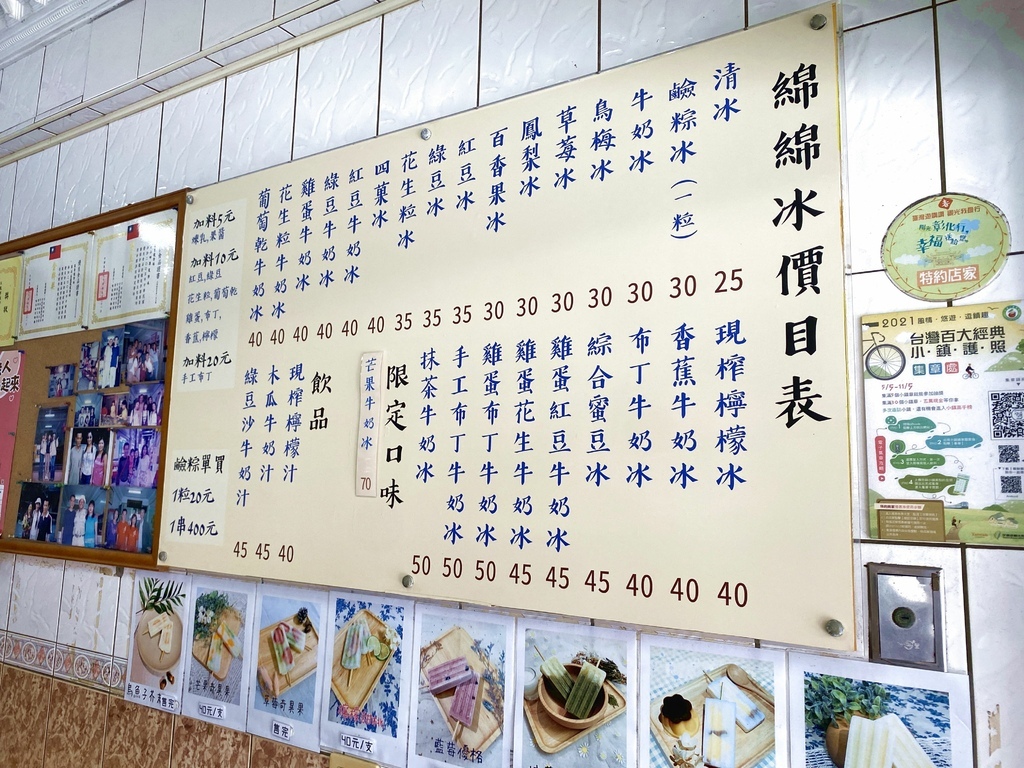 綿綿冰價目表
清冰 25
鹼粽冰（一粒） 30
牛奶冰 30
烏梅冰 30
草莓冰 30
鳳梨冰 30
百香果冰 30
紅豆冰 35
綠豆冰 35
花生粒冰 35
四菓冰 40
紅豆牛奶冰 40
綠豆牛奶冰 40
雞蛋牛奶冰 40
花生粒牛奶冰 40
葡萄乾牛奶冰 40
現榨檸檬冰 40
香蕉牛奶冰 40
布丁牛奶冰 40
綜合蜜豆冰 45
雞蛋紅豆牛奶冰 45
雞蛋花生牛奶冰 45
雞蛋布丁牛奶冰 50
手工布丁牛奶冰 50
抹茶牛奶冰 50
限定口味
芒果牛奶冰 70
飲品
現榨檸檬汁 40
木瓜牛奶汁 45
綠豆沙牛奶汁 45
加料5元
煉乳,果醬
加料10元
紅豆,綠豆
花生粒,葡萄乾
雞蛋,布丁,
香蕉,檸檬
加料20元
手工布丁
鹼粽單買
1粒20元
1串400元
彰化行,
幸福
特約店家
2021 風情·悠遊·這鎮趣
台灣百大經典
小·鎮·護·照
集章處
5/5-11/5
售完
40元/支
售完
40元/支
藍莓優格